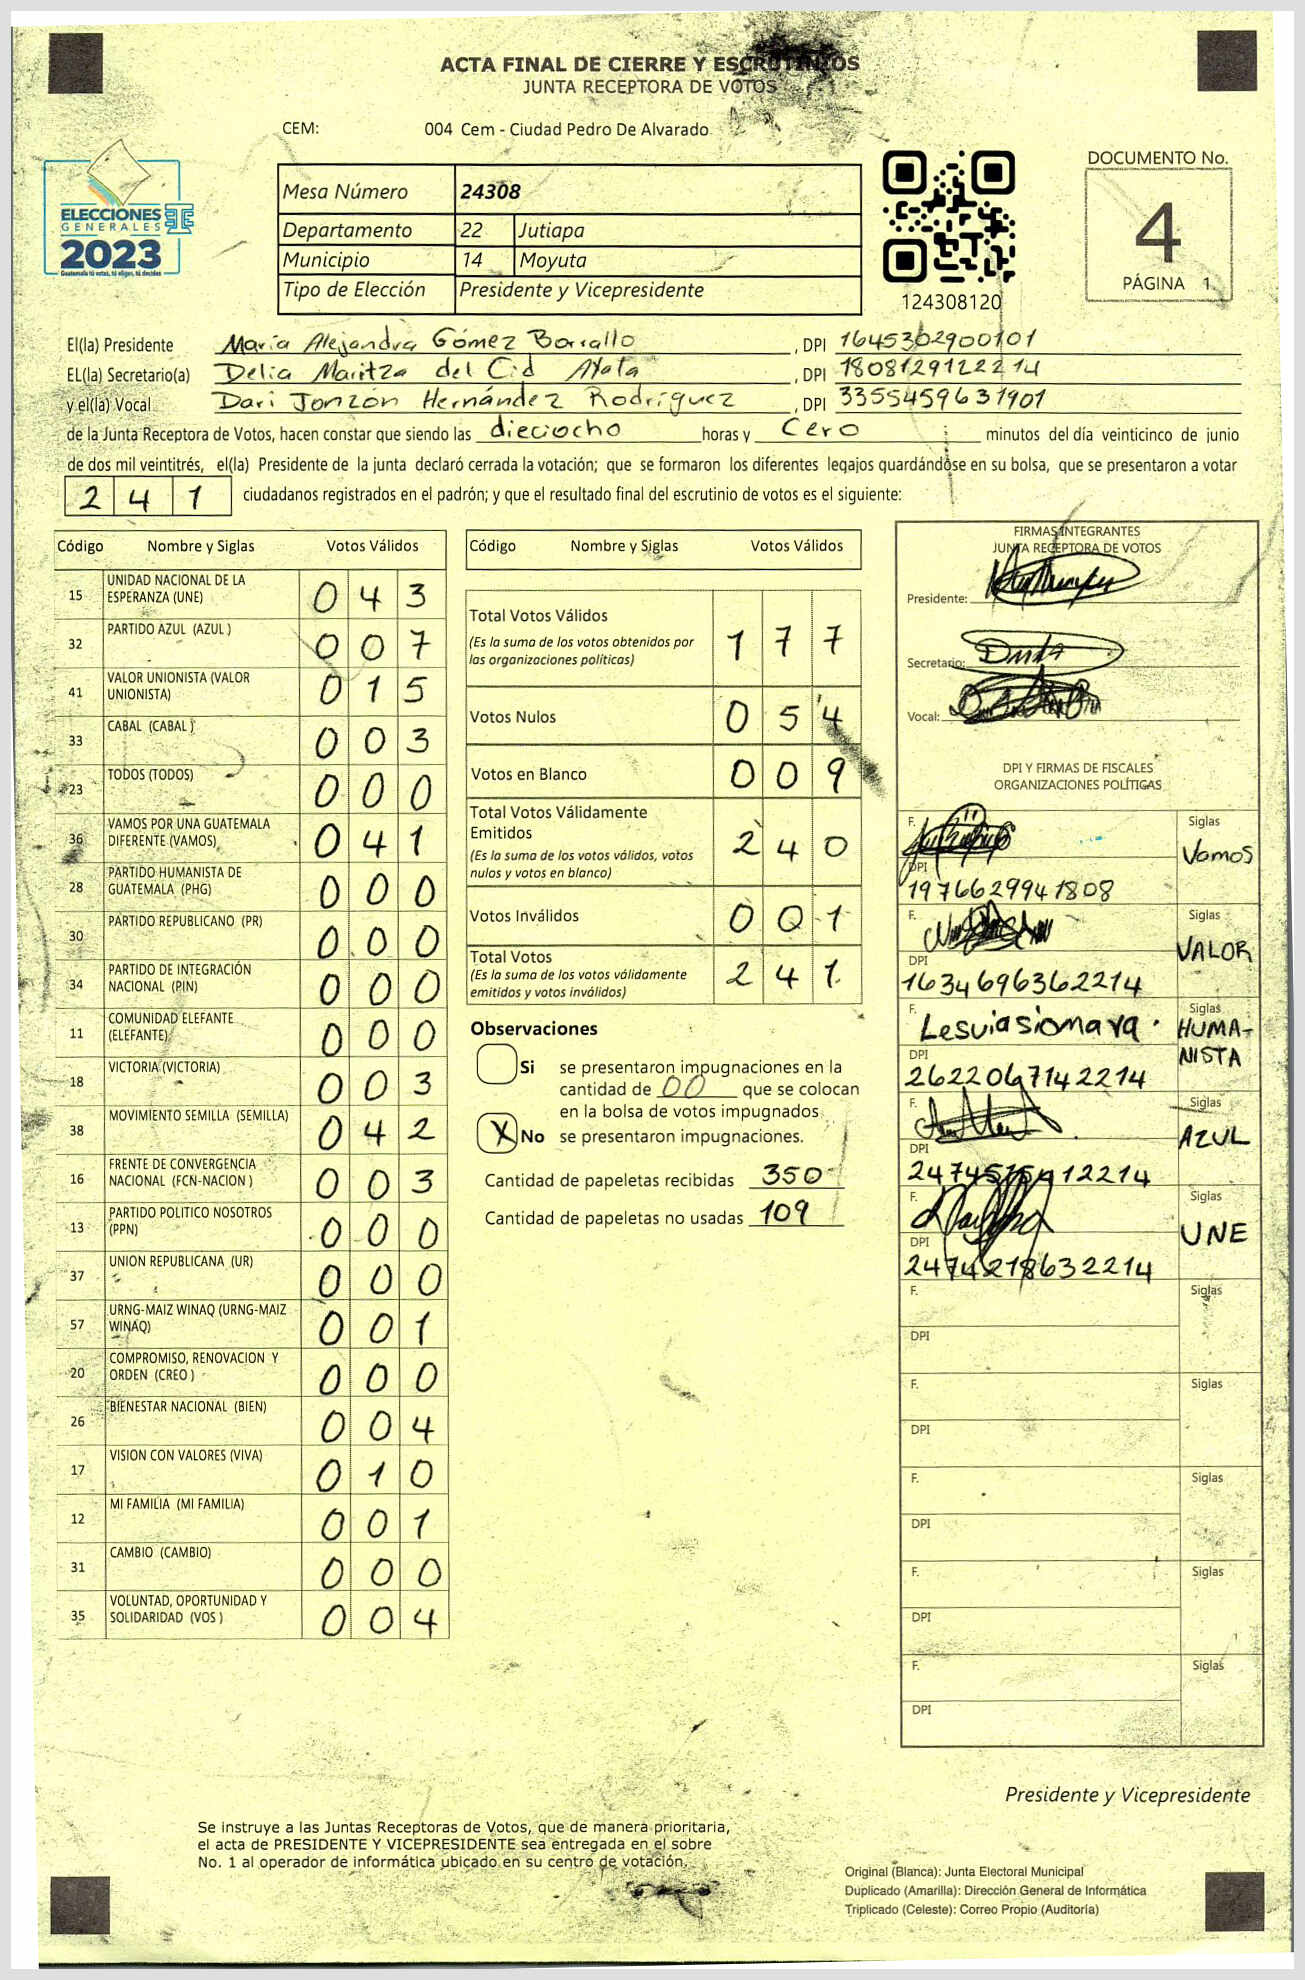 ACTA FINAL DE CIERRE Y ESCRUTINIOS
JUNTA RECEPTORA DE VOTOS
CEM: 004 Cem - Ciudad Pedro De Alvarado
ELECCIONES
GENERALES
2023
Guatemala tú votas, tú eliges, tú decides
Mesa Número 24308
Departamento 22 Jutiapa
Municipio 14 Moyuta
Tipo de Elección Presidente y Vicepresidente
124308120
DOCUMENTO No.
4
PÁGINA 1
El(la) Presidente María Alejandra Gómez Borrallo , DPI 1645302900101
EL(la) Secretario(a) Delia Maritza del Cid , DPI 1808129122214
y el(la) Vocal Dari Jonzón Hernández Rodríguez , DPI 3355459631901
de la Junta Receptora de Votos, hacen constar que siendo las dieciocho horas y Cero minutos del día veinticinco de junio
de dos mil veintitrés, el(la) Presidente de la junta declaró cerrada la votación; que se formaron los diferentes legajos guardándose en su bolsa, que se presentaron a votar
241 ciudadanos registrados en el padrón; y que el resultado final del escrutinio de votos es el siguiente:
Código Nombre y Siglas Votos Válidos
15 UNIDAD NACIONAL DE LA ESPERANZA (UNE) 043
32 PARTIDO AZUL (AZUL ) 007
41 VALOR UNIONISTA (VALOR UNIONISTA) 015
33 CABAL (CABAL ) 003
23 TODOS (TODOS) 000
36 VAMOS POR UNA GUATEMALA DIFERENTE (VAMOS) 041
28 PARTIDO HUMANISTA DE GUATEMALA (PHG) 000
30 PARTIDO REPUBLICANO (PR) 000
34 PARTIDO DE INTEGRACIÓN NACIONAL (PIN) 000
11 COMUNIDAD ELEFANTE (ELEFANTE) 000
18 VICTORIA (VICTORIA) 003
38 MOVIMIENTO SEMILLA (SEMILLA) 042
16 FRENTE DE CONVERGENCIA NACIONAL (FCN-NACION ) 003
13 PARTIDO POLITICO NOSOTROS (PPN) 000
37 UNION REPUBLICANA (UR) 000
57 URNG-MAIZ WINAQ (URNG-MAIZ WINAQ) 001
20 COMPROMISO, RENOVACION Y ORDEN (CREO ) 000
26 BIENESTAR NACIONAL (BIEN) 004
17 VISION CON VALORES (VIVA) 010
12 MI FAMILIA (MI FAMILIA) 001
31 CAMBIO (CAMBIO) 000
35 VOLUNTAD, OPORTUNIDAD Y SOLIDARIDAD (VOS ) 004
Código Nombre y Siglas Votos Válidos
Total Votos Válidos 177
(Es la suma de los votos obtenidos por
las organizaciones políticas)
Votos Nulos 054
Votos en Blanco 009
Total Votos Válidamente
Emitidos 240
(Es la suma de los votos válidos, votos
nulos y votos en blanco)
Votos Inválidos 001
Total Votos 241
(Es la suma de los votos válidamente
emitidos y votos inválidos)
Observaciones
Si se presentaron impugnaciones en la
cantidad de 00 que se colocan
en la bolsa de votos impugnados
X No se presentaron impugnaciones.
Cantidad de papeletas recibidas 350
Cantidad de papeletas no usadas 109
FIRMAS INTEGRANTES
JUNTA RECEPTORA DE VOTOS
Presidente:
Secretario:
Vocal:
DPI Y FIRMAS DE FISCALES
ORGANIZACIONES POLÍTICAS
F. Siglas
Vamos
DPI
1976629941808
F. Siglas
VALOR
DPI
1634696362214
F. Siglas
Lesviasiomara HUMA-
NISTA
DPI
2622067142214
F. Siglas
AZUL
DPI
F. Siglas
UNE
DPI
2474218632214
F. Siglas
DPI
F. Siglas
DPI
F. Siglas
DPI
F. Siglas
DPI
F. Siglas
DPI
Presidente y Vicepresidente
Se instruye a las Juntas Receptoras de Votos, que de manera prioritaria,
el acta de PRESIDENTE Y VICEPRESIDENTE sea entregada en el sobre
No. 1 al operador de informática ubicado en su centro de votación.
Original (Blanca): Junta Electoral Municipal
Duplicado (Amarilla): Dirección General de Informática
Triplicado (Celeste): Correo Propio (Auditoría)